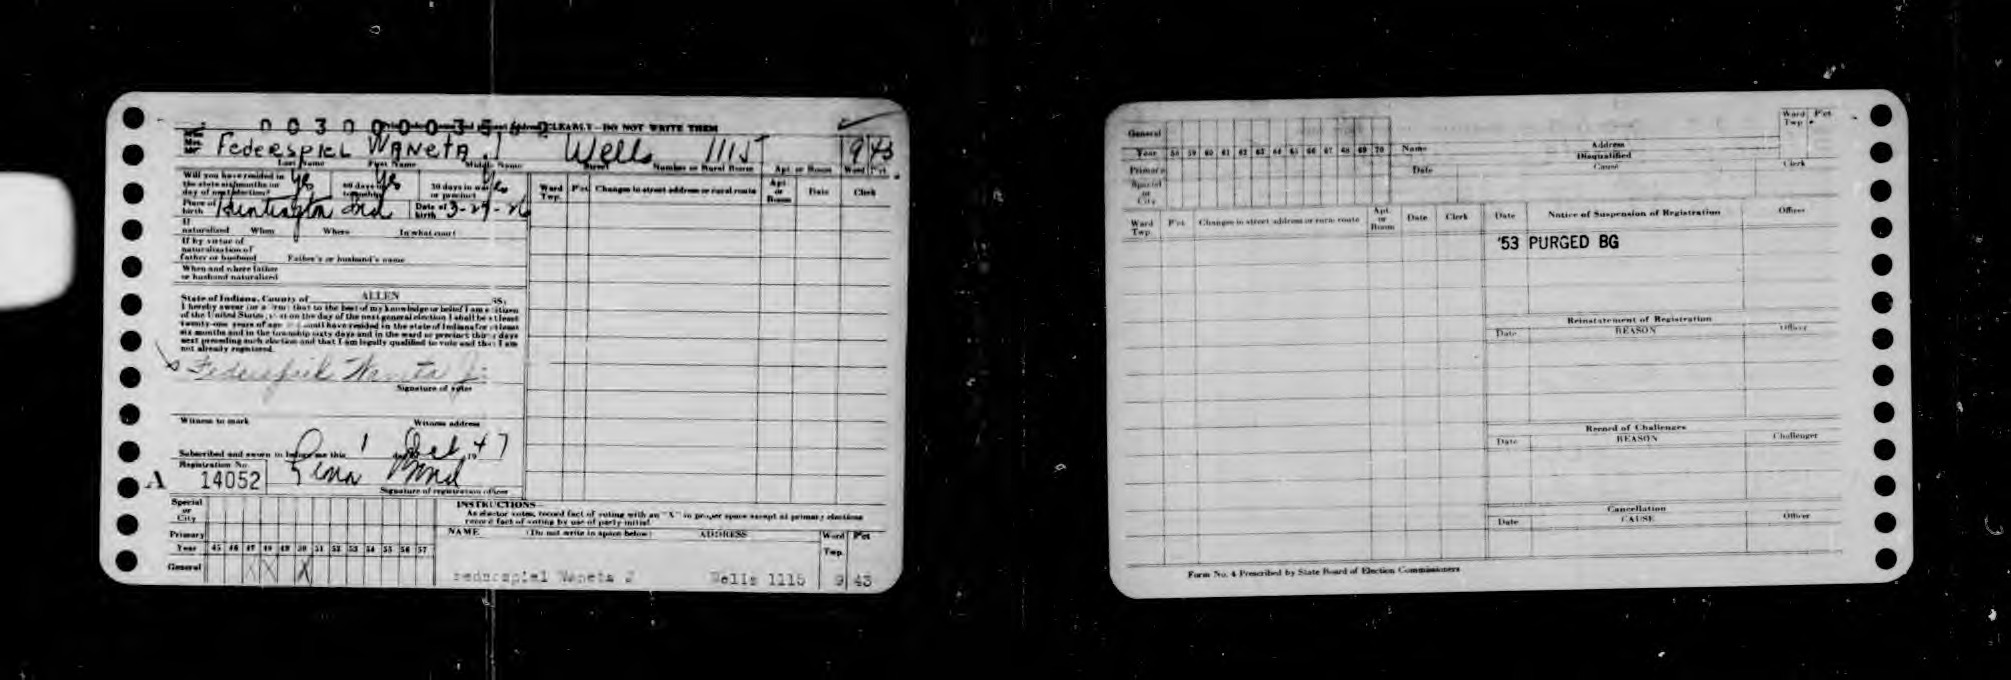 CLEARLY - DO NOT WRITE THEM
Federspiel Waneta J Wells 1115 9 43
Last Name First Name Middle Name Street Number or Rural Route Apt. or Room Ward P'ct
Will you have resided in the state six months on day of next election? Yes 60 days in township Yes 30 days in ward or precinct Yes
Place of birth Huntington Ind Date of birth 3-29-26
Ward Twp. P'ct Changes in street address or rural route Apt. or Room Date Clerk
If naturalized When Where In what court
If by virtue of naturalization of father or husband Father's or husband's name
When and where father or husband naturalized
State of Indiana, County of ALLEN SS:
I hereby swear (or affirm) that to the best of my knowledge or belief I am a citizen
of the United States, that on the day of the next general election I shall be at least
twenty-one years of age and will have resided in the state of Indiana for at least
six months and in the township sixty days and in the ward or precinct thirty days
next preceding such election and that I am legally qualified to vote and that I am
not already registered.
Federspiel Waneta J.
Signature of voter
Witness to mark Witness address
Subscribed and sworn to before me this 1 day of Oct 1947
Registration No.
A 14052
Signature of registration officer
INSTRUCTIONS—
As elector votes, record fact of voting with an "X" in proper space except at primary elections
record fact of voting by use of party initial
Special or City
Primary
Year 45 46 47 48 49 50 51 52 53 54 55 56 57
General X X X
NAME (Do not write in space below) ADDRESS Ward Twp. P'ct
Federspiel Waneta J Wells 1115 9 43
General
Year 58 59 60 61 62 63 64 65 66 67 68 69 70
Primary
Special or City
Name Address Ward Twp. P'ct
Disqualified
Date Cause Clerk
Ward Twp. P'ct Changes in street address or rural route Apt. or Room Date Clerk
Date Notice of Suspension of Registration Officer
'53 PURGED BG
Reinstatement of Registration
Date REASON Officer
Record of Challenges
Date REASON Challenger
Cancellation
Date CAUSE Officer
Form No. 4 Prescribed by State Board of Election Commissioners